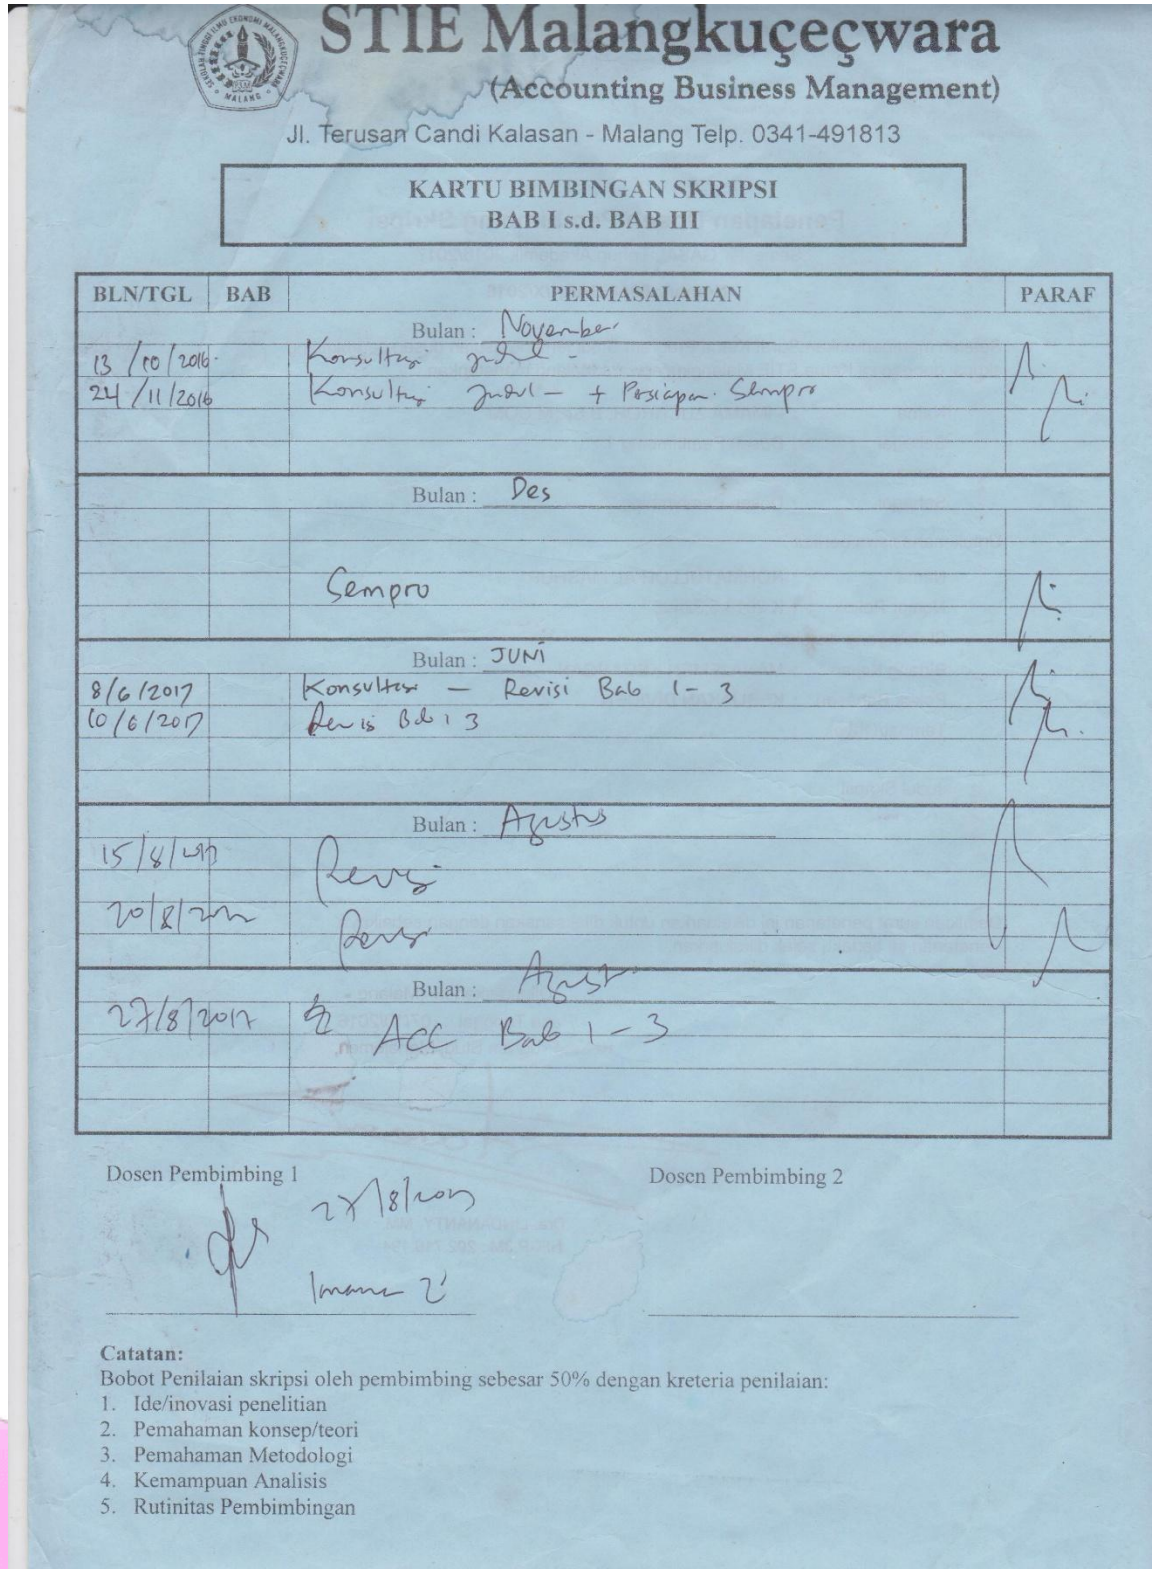 STIE Malangkuçeçwara
(Accounting Business Management)
SEKOLAH TINGGI ILMU EKONOMI MALANGKUÇEÇWARA
MALANG
Jl. Terusan Candi Kalasan - Malang Telp. 0341-491813
KARTU BIMBINGAN SKRIPSI
BAB I s.d. BAB III
BLN/TGL BAB PERMASALAHAN PARAF
Bulan : November
13 /10/2016 Konsultasi judul -
24 /11/2016 Konsultasi judul - + Persiapan Sempro
Bulan : Des
Sempro
Bulan : JUNI
8/6/2017 Konsultasi - Revisi Bab 1-3
10/6/2017 Revisi Bab 1 3
Bulan : Agustus
15/8/2017 Revisi
20/8/ Revisi
Bulan :
27/8/2017 ACC Bab 1-3
Dosen Pembimbing 1 Dosen Pembimbing 2
27/8/2017
Catatan:
Bobot Penilaian skripsi oleh pembimbing sebesar 50% dengan kreteria penilaian:
1. Ide/inovasi penelitian
2. Pemahaman konsep/teori
3. Pemahaman Metodologi
4. Kemampuan Analisis
5. Rutinitas Pembimbingan